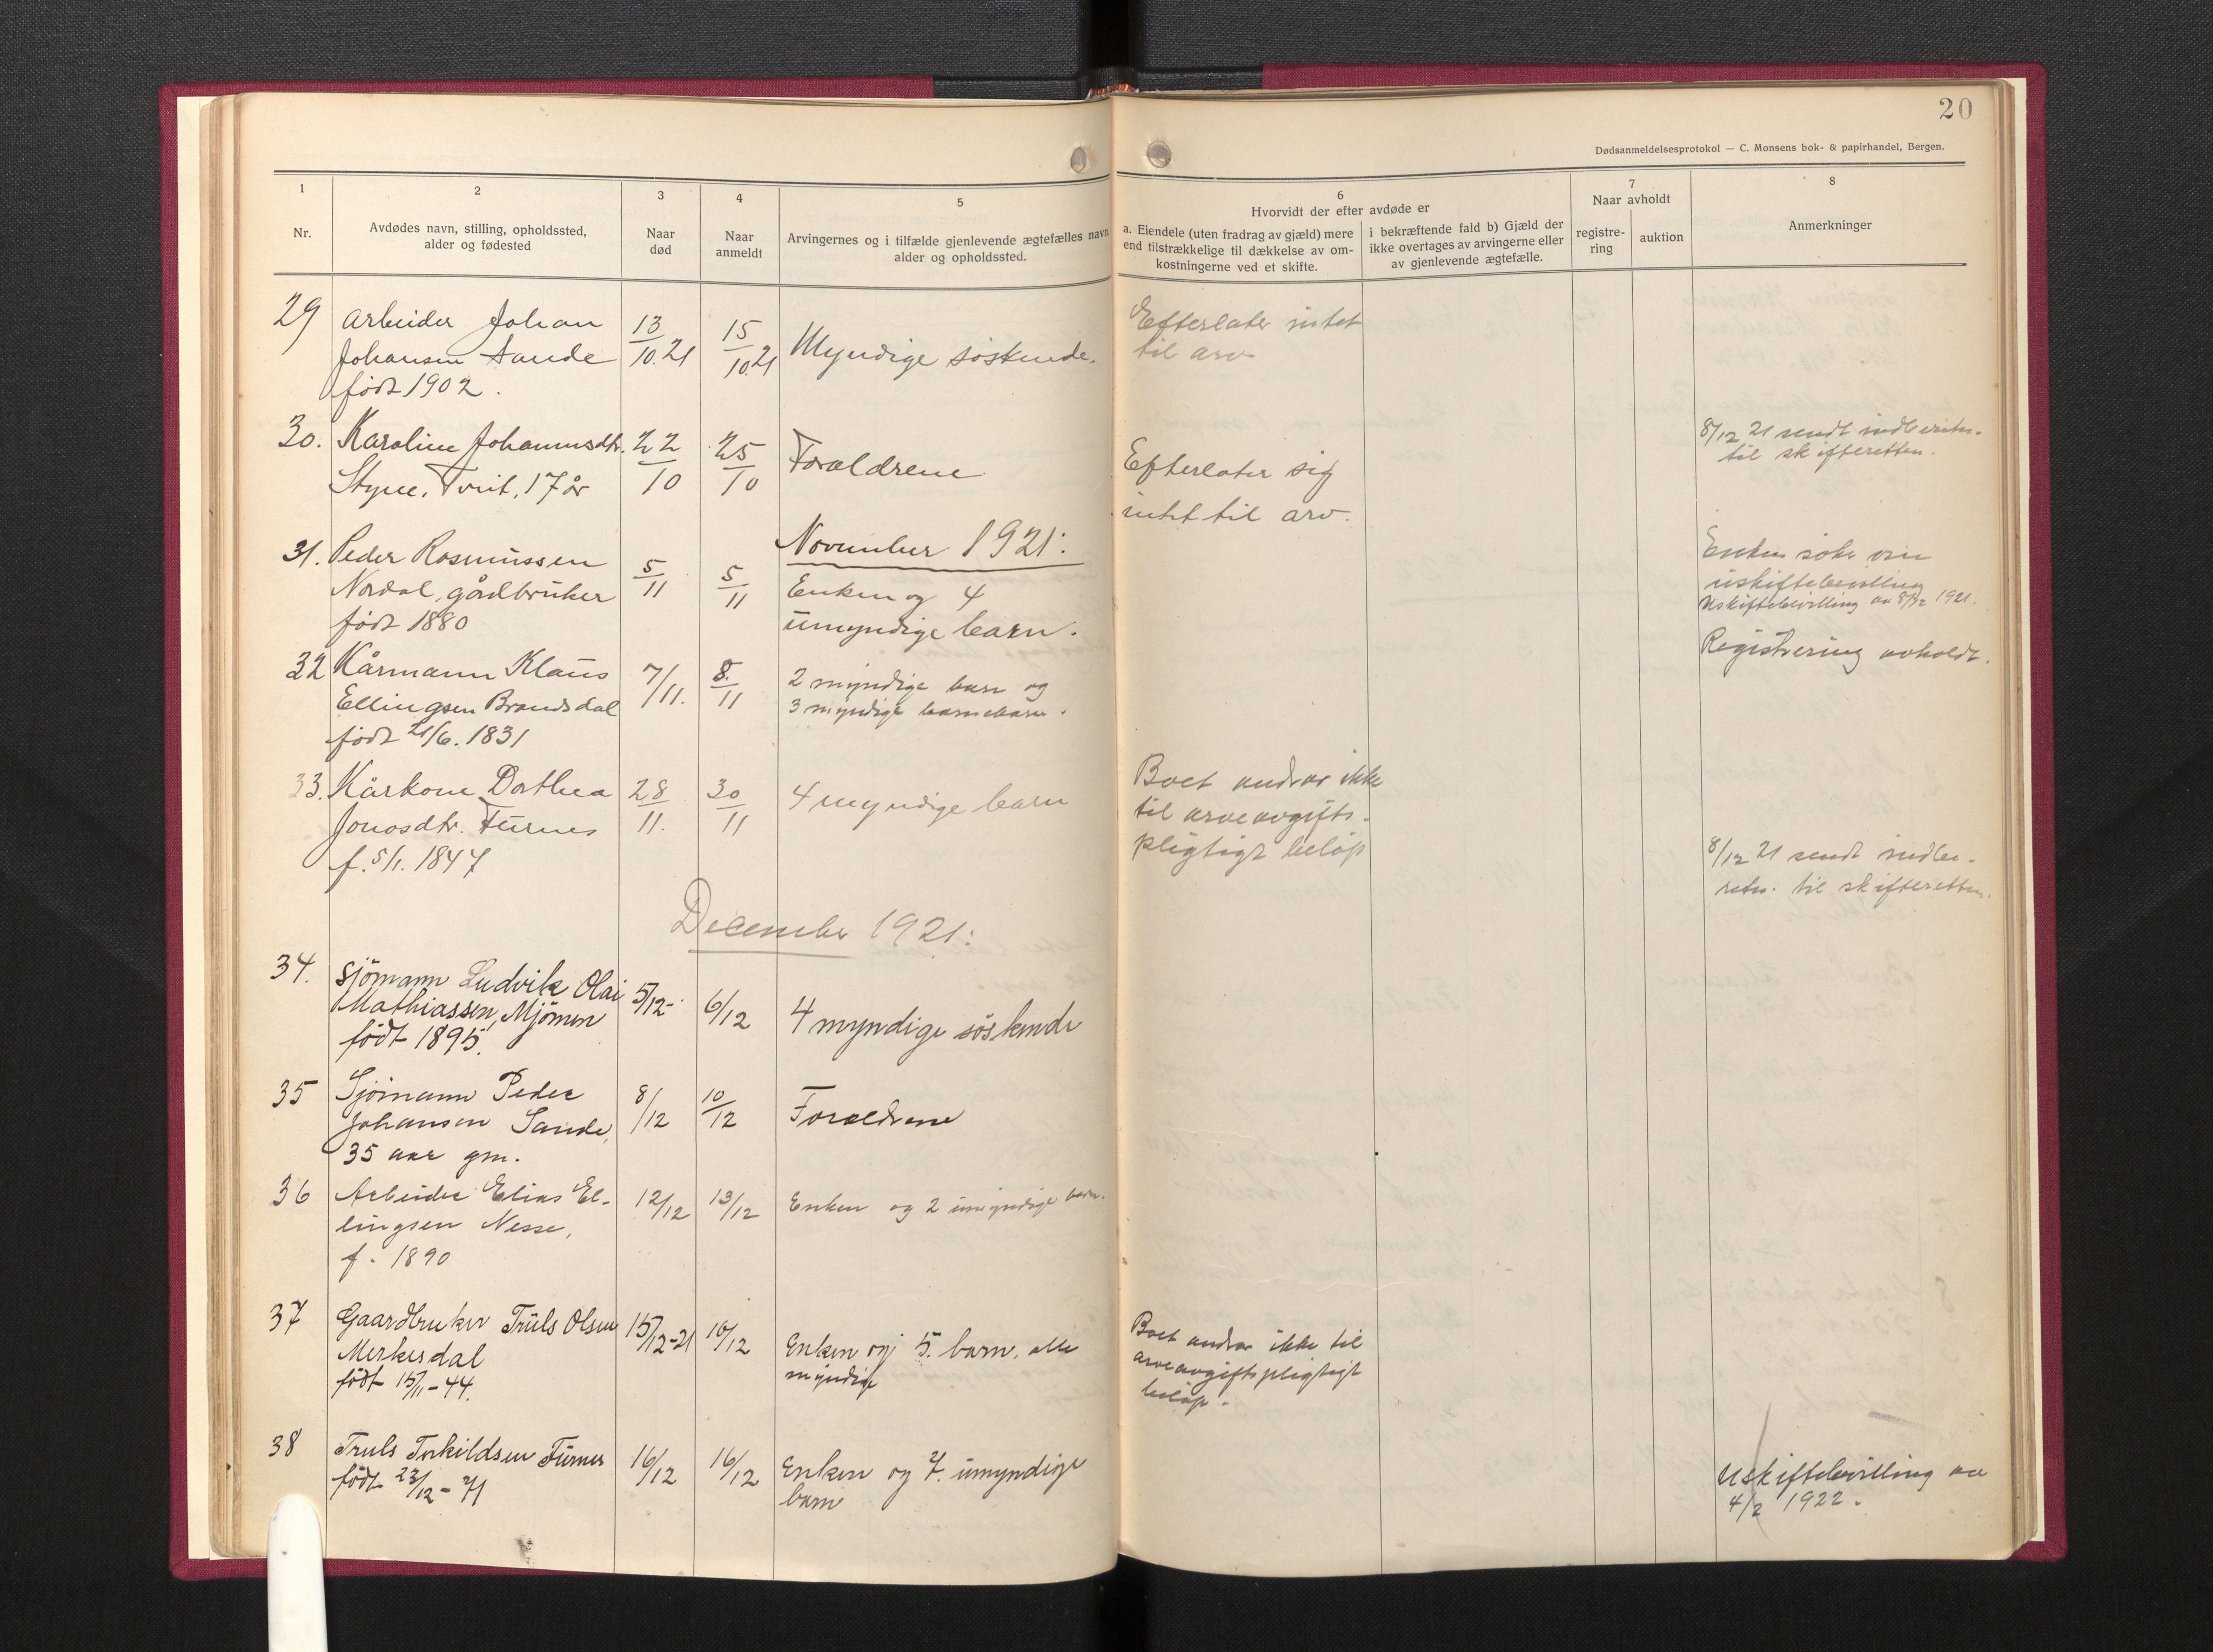 20
Dødsanmeldelsesprotokol — C. Monsens bok- & papirhandel, Bergen.
1
Nr.
2
Avdødes navn, stilling, opholdssted,
alder og fødested
3
Naar
død
4
Naar
anmeldt
5
Arvingernes og i tilfælde gjenlevende ægtefælles navn
alder og opholdssted.
6
Hvorvidt der efter avdøde er
a. Eiendele (uten fradrag av gjæld) mere
end tilstrækkelige til dækkelse av om-
kostningerne ved et skifte.
i bekræftende fald b) Gjæld der
ikke overtages av arvingerne eller
av gjenlevende ægtefælle.
7
Naar avholdt
registre-
ring
auktion
8
Anmerkninger
29
Arbeider Johan
Johansen Sande
født 1902.
13/10.21
15/10.21
Myndige söskende.
Efterlater intet
til arv
30.
Karoline Johannesdtr.
Styve, Tvit, 17 år
22/10
25/10
Forældrene
Efterlater sig
intet til arv.
8/12 21 sendt indberetn.
til skifteretten.
November 1921:
31.
Peder Rasmussen
Nordal, gårdbruker
født 1880
5/11
5/11
Enken og 4
umyndige barn.
Enken søker om
uskiftebevilling
Uskiftebevilling av 8/12 1921.
32
Kårmann Klaus
Ellingsen Brandsdal
født 21/6. 1831
7/11.
8./11
2 myndige barn og
3 myndige barnebarn.
Registrering avholdt.
33.
Kårkone Dorthea
Jonasdtr. Furnes
f. 5/1. 1847
28/11.
30/11
4 myndige barn
Boet andrar ikke
til arveavgifts-
pligtigt beløp
8/12 21 sendt indbe-
retn. til skifteretten.
December 1921:
34.
Sjömann Ludvik Olai
Mathiassen, Mjömen
födt 1895.
5/12-
6/12
4 myndige söskende
35
Sjömann Peder
Johansen Sande,
35 aar gm.
8/12
10/12
Forældrene
36
Arbeider Elias El-
lingsen Nesse,
f. 1890
12/12
13/12
Enken og 2 umyndige barn.
37
Gaardbruker Truls Olsen
Merkesdal
födt 15/11-44.
15/12-21
16/12
Enken og 5. barn, alle
myndige
Boet andrar ikke til
arveavgiftspligtigt
beløp.
38
Truls Torkildsen Furnes
födt 23/12-71
16/12
16/12
Enken og 7. umyndige
barn
Uskiftebevilling av
4/2 1922.